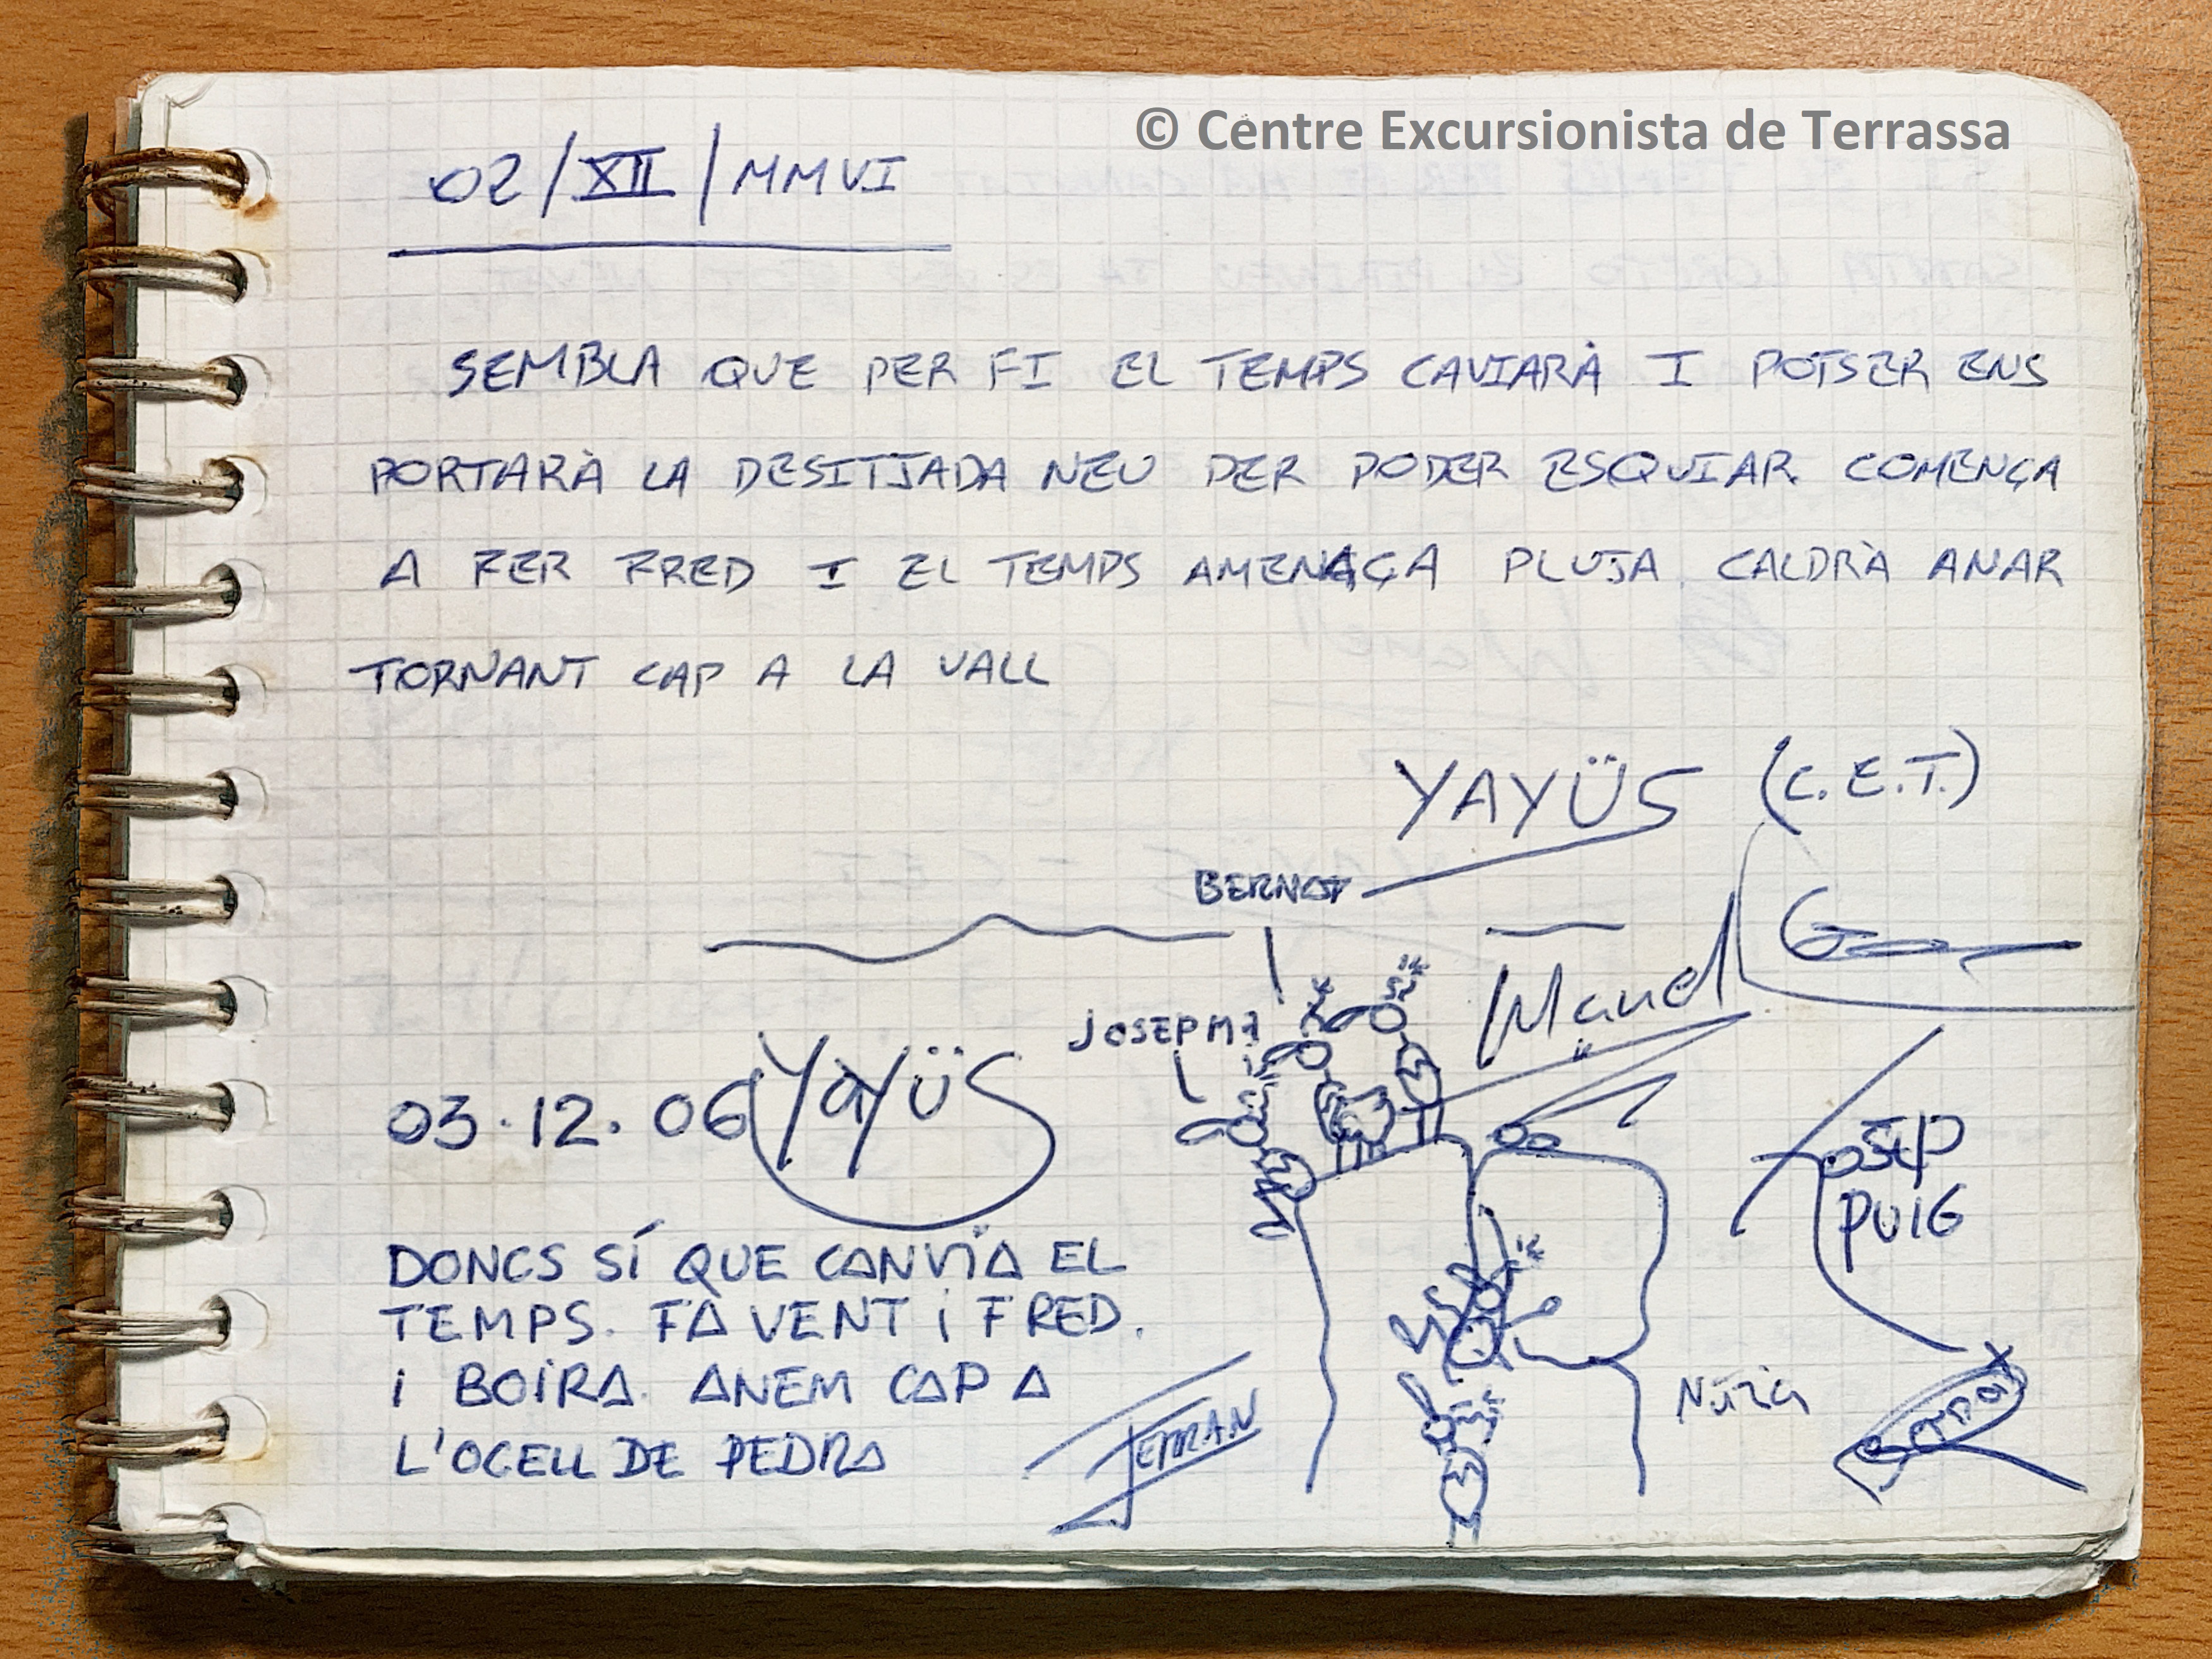 © Centre Excursionista de Terrassa
02/XII/MMVI
SEMBLA QUE PER FI EL TEMPS CAVIARÀ I POTSER ENS
PORTARÀ LA DESITJADA NEU PER PODER ESQUIAR. COMENÇA
A FER FRED I EL TEMPS AMENAÇA PLUJA. CALDRÀ ANAR
TORNANT CAP A LA VALL
YAYÜS (C.E.T.)
BERNAT
Manel
JOSEP Mª
03.12.06 YAYÜS
JOSEP
PUIG
DONCS SÍ QUE CANVIA EL
TEMPS. FA VENT I FRED.
I BOIRA. ANEM CAP A
L'OCELL DE PEDRA
FERRAN
Núria